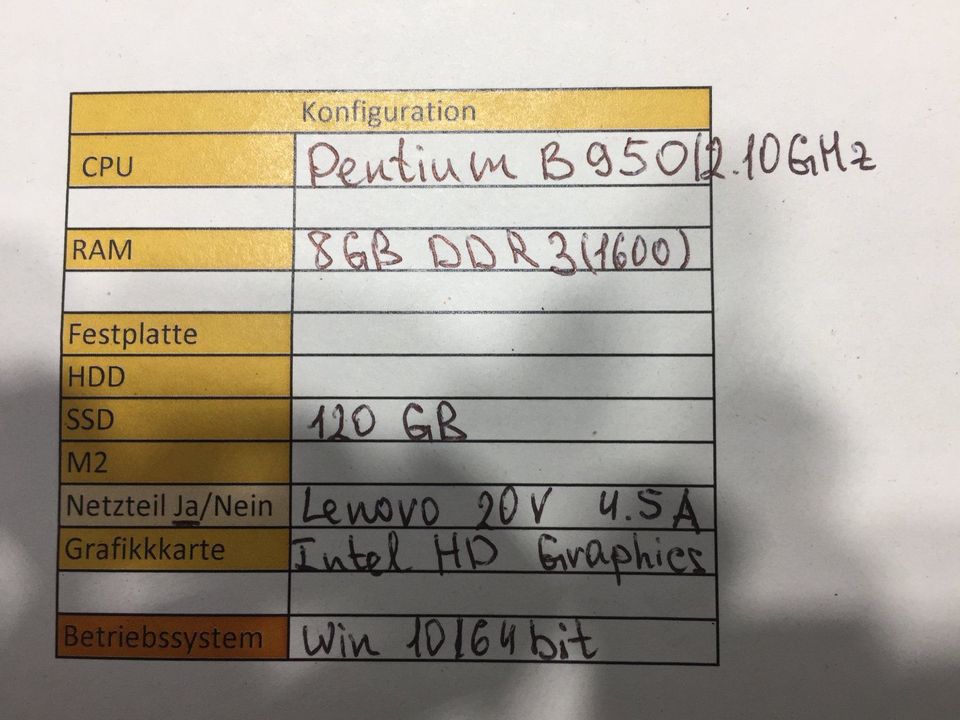 Konfiguration
CPU Pentium B950/2.10GHz
RAM 8GB DDR3(1600)
Festplatte
HDD
SSD 120 GB
M2
Netzteil Ja/Nein Lenovo 20V 4.5A
Grafikkkarte Intel HD Graphics
Betriebssystem Win 10/64bit